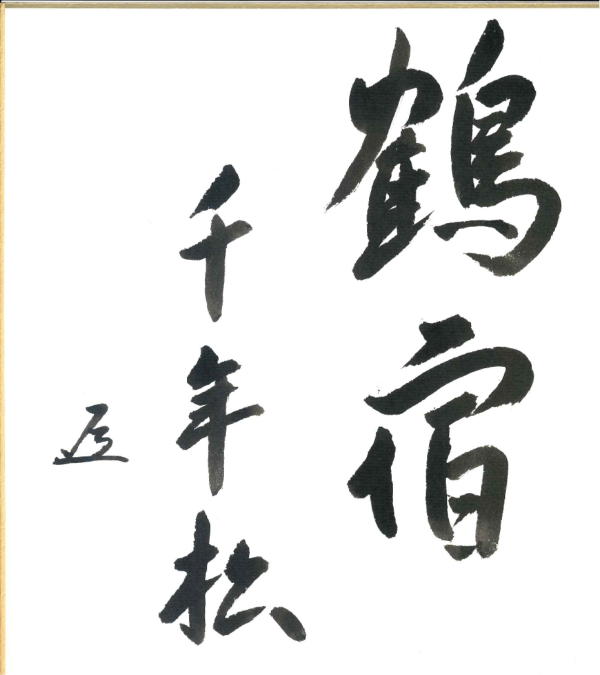 鶴宿
千年松